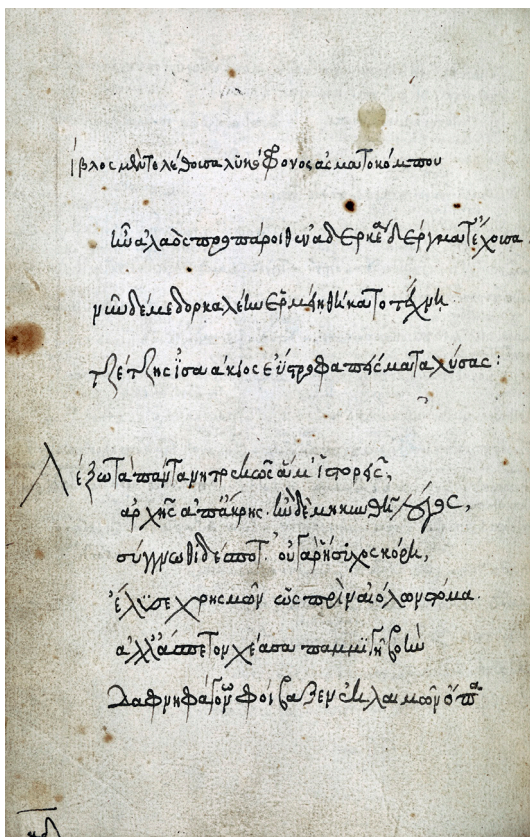 ίβλος μὲν τελέθουσα λυκόφρονος ἀσματοκόμπου
ἦν ἀλαὸς προπάροιθεν ἀδερκέα δέργματ' ἔχουσα
νῦν δέ με δορκαλέην θήκατο τέχνη
τζέτζης ἰσαάκιος εὔστροφα λύσας:
Λέξω τὰ πάντα νητρεκῶς ἅ μ' ἱστορεῖς,
ἀρχῆς ἀπ' ἄκρης. ἢν δὲ μηκυνθῇ λόγος,
σύγγνωθι δέσποτ'. οὐ γὰρ ἥσυχος κόρη,
ἔλυσε χρησμῶν ὡς πρὶν αἰόλων στόμα.
ἀλλ' ἄσπετον χέασα παμμιγῆ βοὴν
δαφνηφάγων φοίβαζεν ἐκ λαιμῶν ὄπα